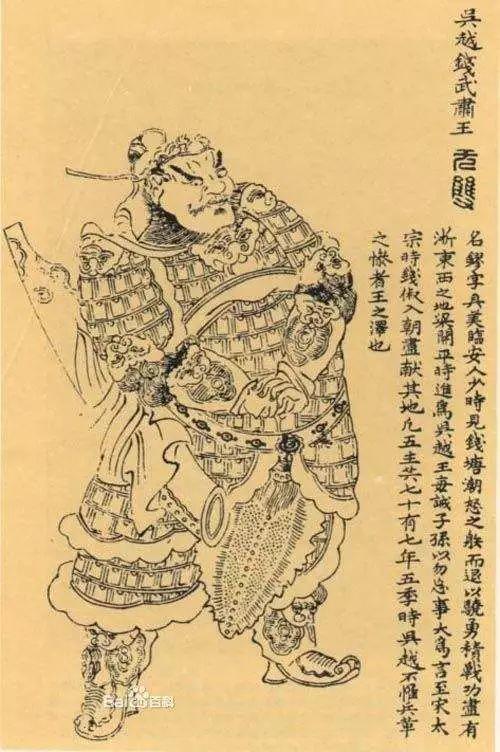 吳越錢武肅王 无雙
名鏐字具美臨安人少時見錢塘潮怒之䠶而退以驍勇積戰功盡有
浙東西之地梁開平時進爲吳越王每誡子孫以勿忘事大爲言至宋太
宗時錢俶入朝盡獻其地凡五主共七十有七年五季時吳越不罹兵革
之慘者王之澤也
Bai百科